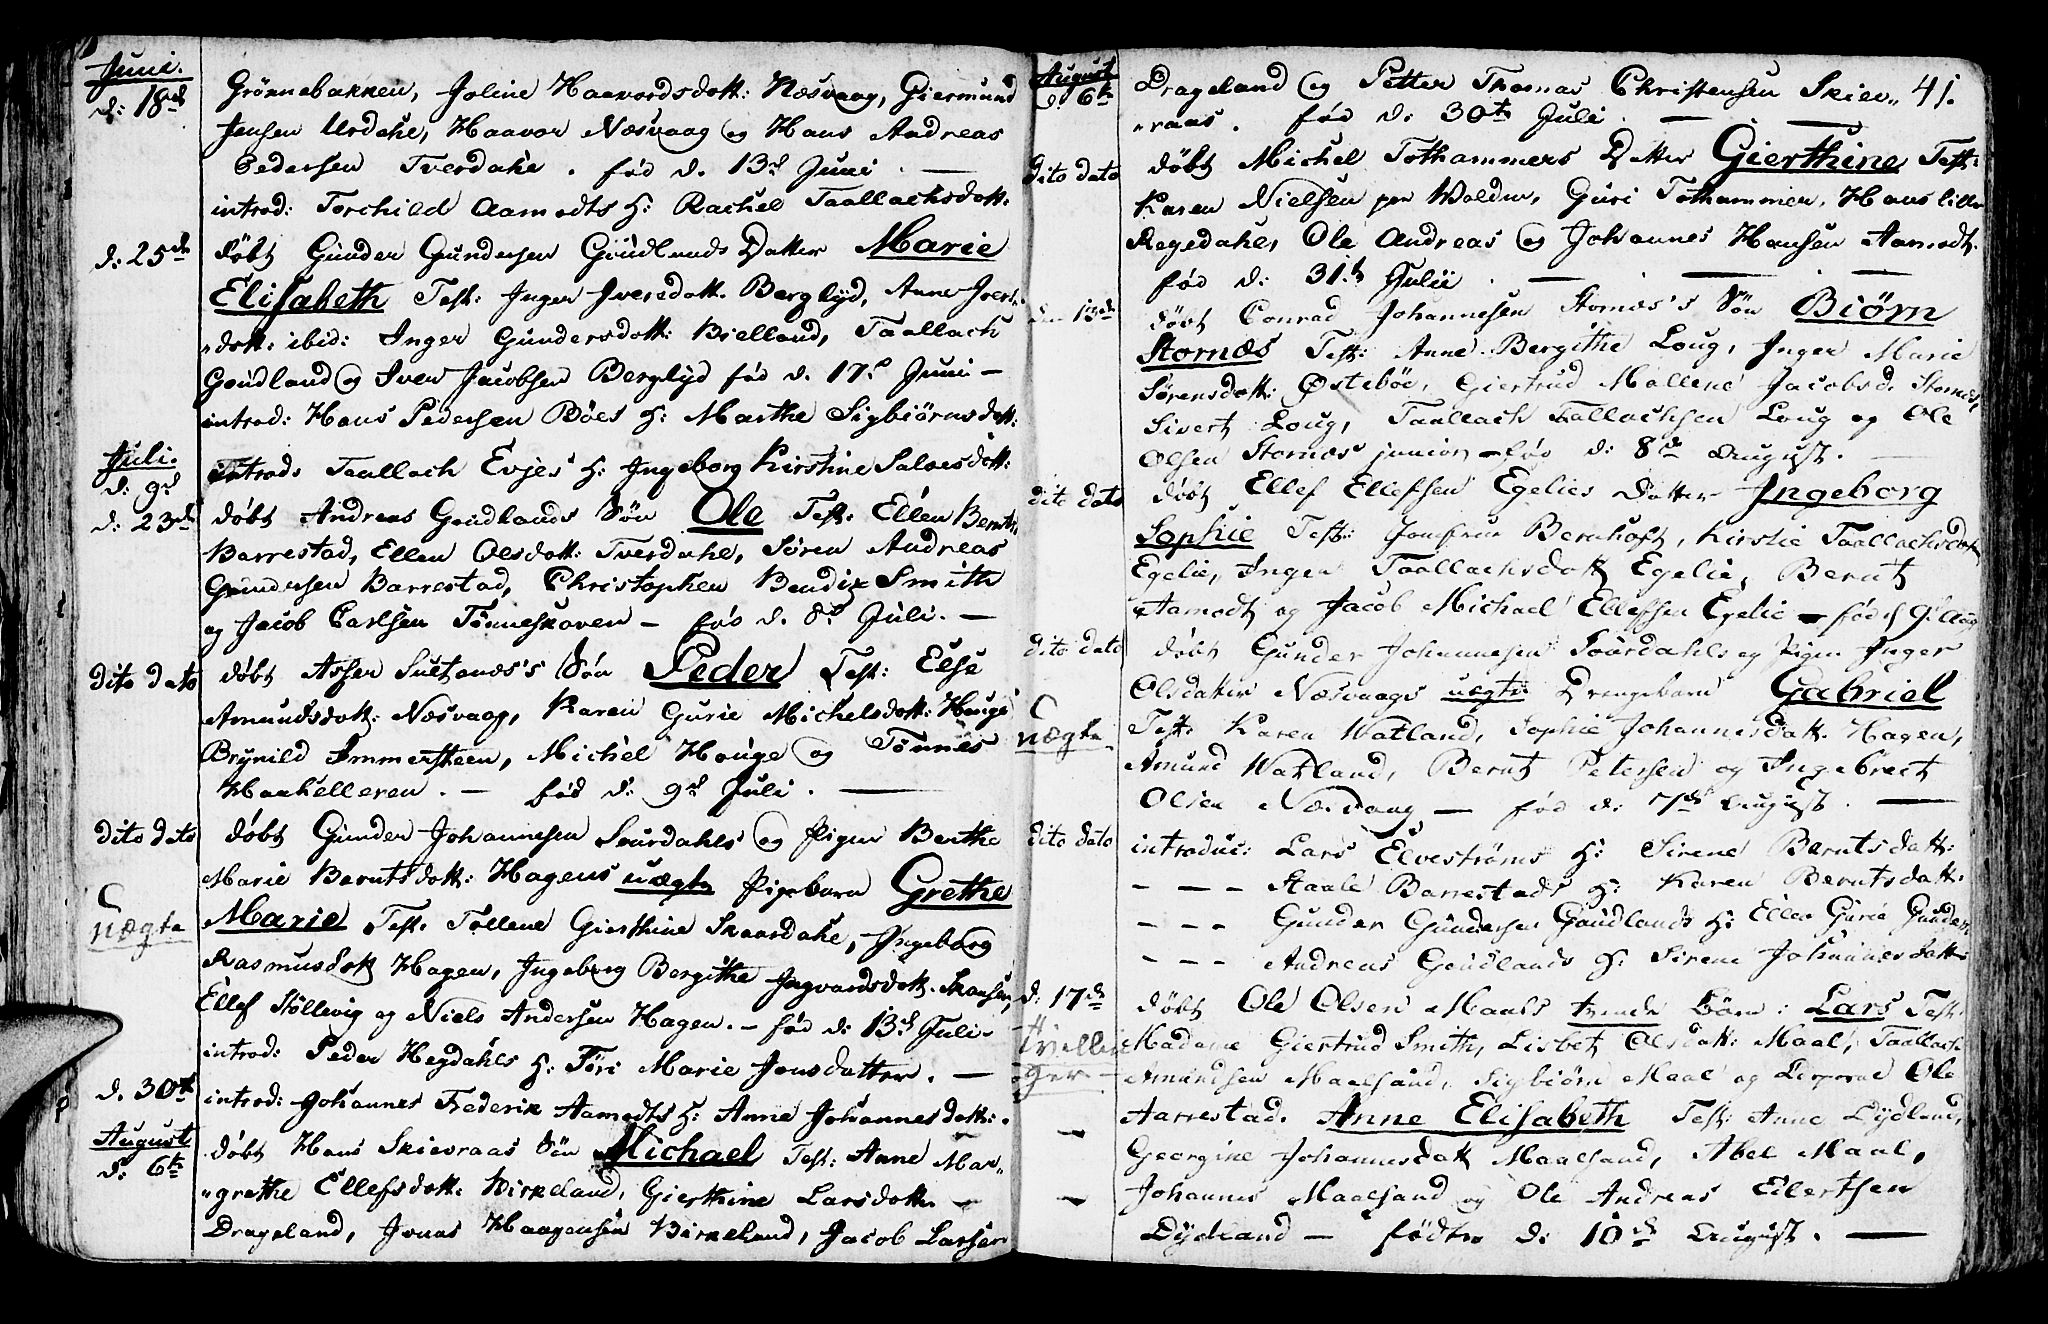 Juni.
d: 18de Grönnebakken, Joline Haavordsdott: Næsvaag, Giermund
Jensen Urdahl, Haavor Næsvaag og Hans Andreas
Pedersen Tverdahl. fød d. 13d Juni. —
introd: Torchild Aamodts H: Rachel Taallachsdott:
d: 25de døbt Gunder Gundersen Goudlands Datter Marie
Elisabeth Test: Inger Iversdott. Berglyd, Anne Ivers"
"dott: ibid: Inger Gundersdott: Bielland, Taallach
Goudland og Iver Jacobsen Berglyd fød d. 17d Juni —
introd: Hans Pedersen Böes H: Marthe Sigbiörnsdott:
Juli.
d: 9d introd: Taallach Evjes H: Ingeborg Kirstine Salvesdott:
d: 23de døbt Andreas Goudlands Søn Ole Test: Ellen Bernts
Barrestad, Ellen Olsdott: Tverdahl, Søren Andreas
Gundersen Barrestad, Christopher Bendix Smith
og Jacob Carlsen Tönneskoven — fød d. 8d Juli. —
dito dato døbt Asser Sultenæs's Søn Peder Test: Else
Amundsdott: Næsvaag, Karen Gurie Michelsdott: Houge
Brynild Immersteen, Michel Houge og Tönnes
Haahelleren. — fød d: 9d Juli. —
dito dato døbt Gunder Johannesen Sourdahls og Pigen Berthe
Marie Berntsdott: Hagens uægte Pigebarn Grethe
uægte Marie Test. Tollene Gierthine Skaardahl, Ingeborg
Rasmusdott Hagen, Ingeborg Bergithe Ingvardsdott. Skansen,
Ellef Stöllevig og Niels Andersen Hagen. — fød d: 13d Juli.
introd: Peder Hegdahls H: Töri Marie Jonsdatter. —
d. 30te introd: Johannes Frederik Aamodts H: Anne Johannesdott:.
August
d: 6te døbt Hans Skievraas Søn Michael Test: Anne Mar"
"grethe Ellefsdott: Birkeland, Gierthine Larsdott. —
Drageland, Jonas Haagensen Birkeland, Jacob Larsen
41.
August
d: 6te Drageland og Petter Thomas Christensen Skiev"
"raas. fød d: 30te Juli. — —
dito dato døbt Michel Tothammers Datter Gierthine Test:
Karen Nielsen paa Walden, Guri Tothammer, Hans lille
Regedahl, Ole Andreas og Johannes Hansen Aamodt.
fød d: 31te Julii. — — —
den 13de døbt Conrad Johannesen Stornæs's Søn Biörn
Stornæs Test: Anne Bergithe Loug, Inger Marie
Sörensdott: Östeböe, Giertrud Mallene Jacobsd. Stornæs,
Sivert Loug, Taallach Taallachsen Loug og Ole
Olsen Stornæs junior — fød d: 8de August. —
dito dato døbt Ellef Ellefsen Egelies Datter Ingeborg
Sophie Test: Jomfrue Bernhoft, Kirstie Taallachsdott
Egelie, Inger Taallachsdott Egelie, Bernt
Aamodt og Jacob Michael Ellefsen Egelie — fød d 9d Aug
dito dato døbt Gunder Johannesen Sourdahls og Pigen Inger
Olsdatter Næsvaags uægte Drengebarn Gabriel
uægte Test: Karen Watland, Sophie Johannesdott. Hagen,
Amund Watland, Bernt Petersen og Ingebrect
Olsen Næsvaag — fød d: 7de August. —
dito dato introduc: Lars Elveströms H: Sirene Berntsdott:
— — — Staale Barrestads H: Karen Berntsdott:
— — — Gunder Gundersen Goudlands H: Ellen Gurie Gunders
— — — Andreas Goudlands H: Sirene Johannesdott
d: 17de døbt Ole Olsen Maals tvende Börn: Lars Test.
Tvillin Madame Giertrud Smith, Lisbet Olsdott: Maal, Taallach
ger — Amundsen Maalsand, Sigbiörn Maal og Corporal Ole
Aarrestad. Anne Elisabeth Test: Anne Dydland,
— Georgine Johannesdott Maalsand, Abel Maal,
— Johannes Maalsand og Ole Andreas Eilertsen
Dydland — fødte d: 10de August. —